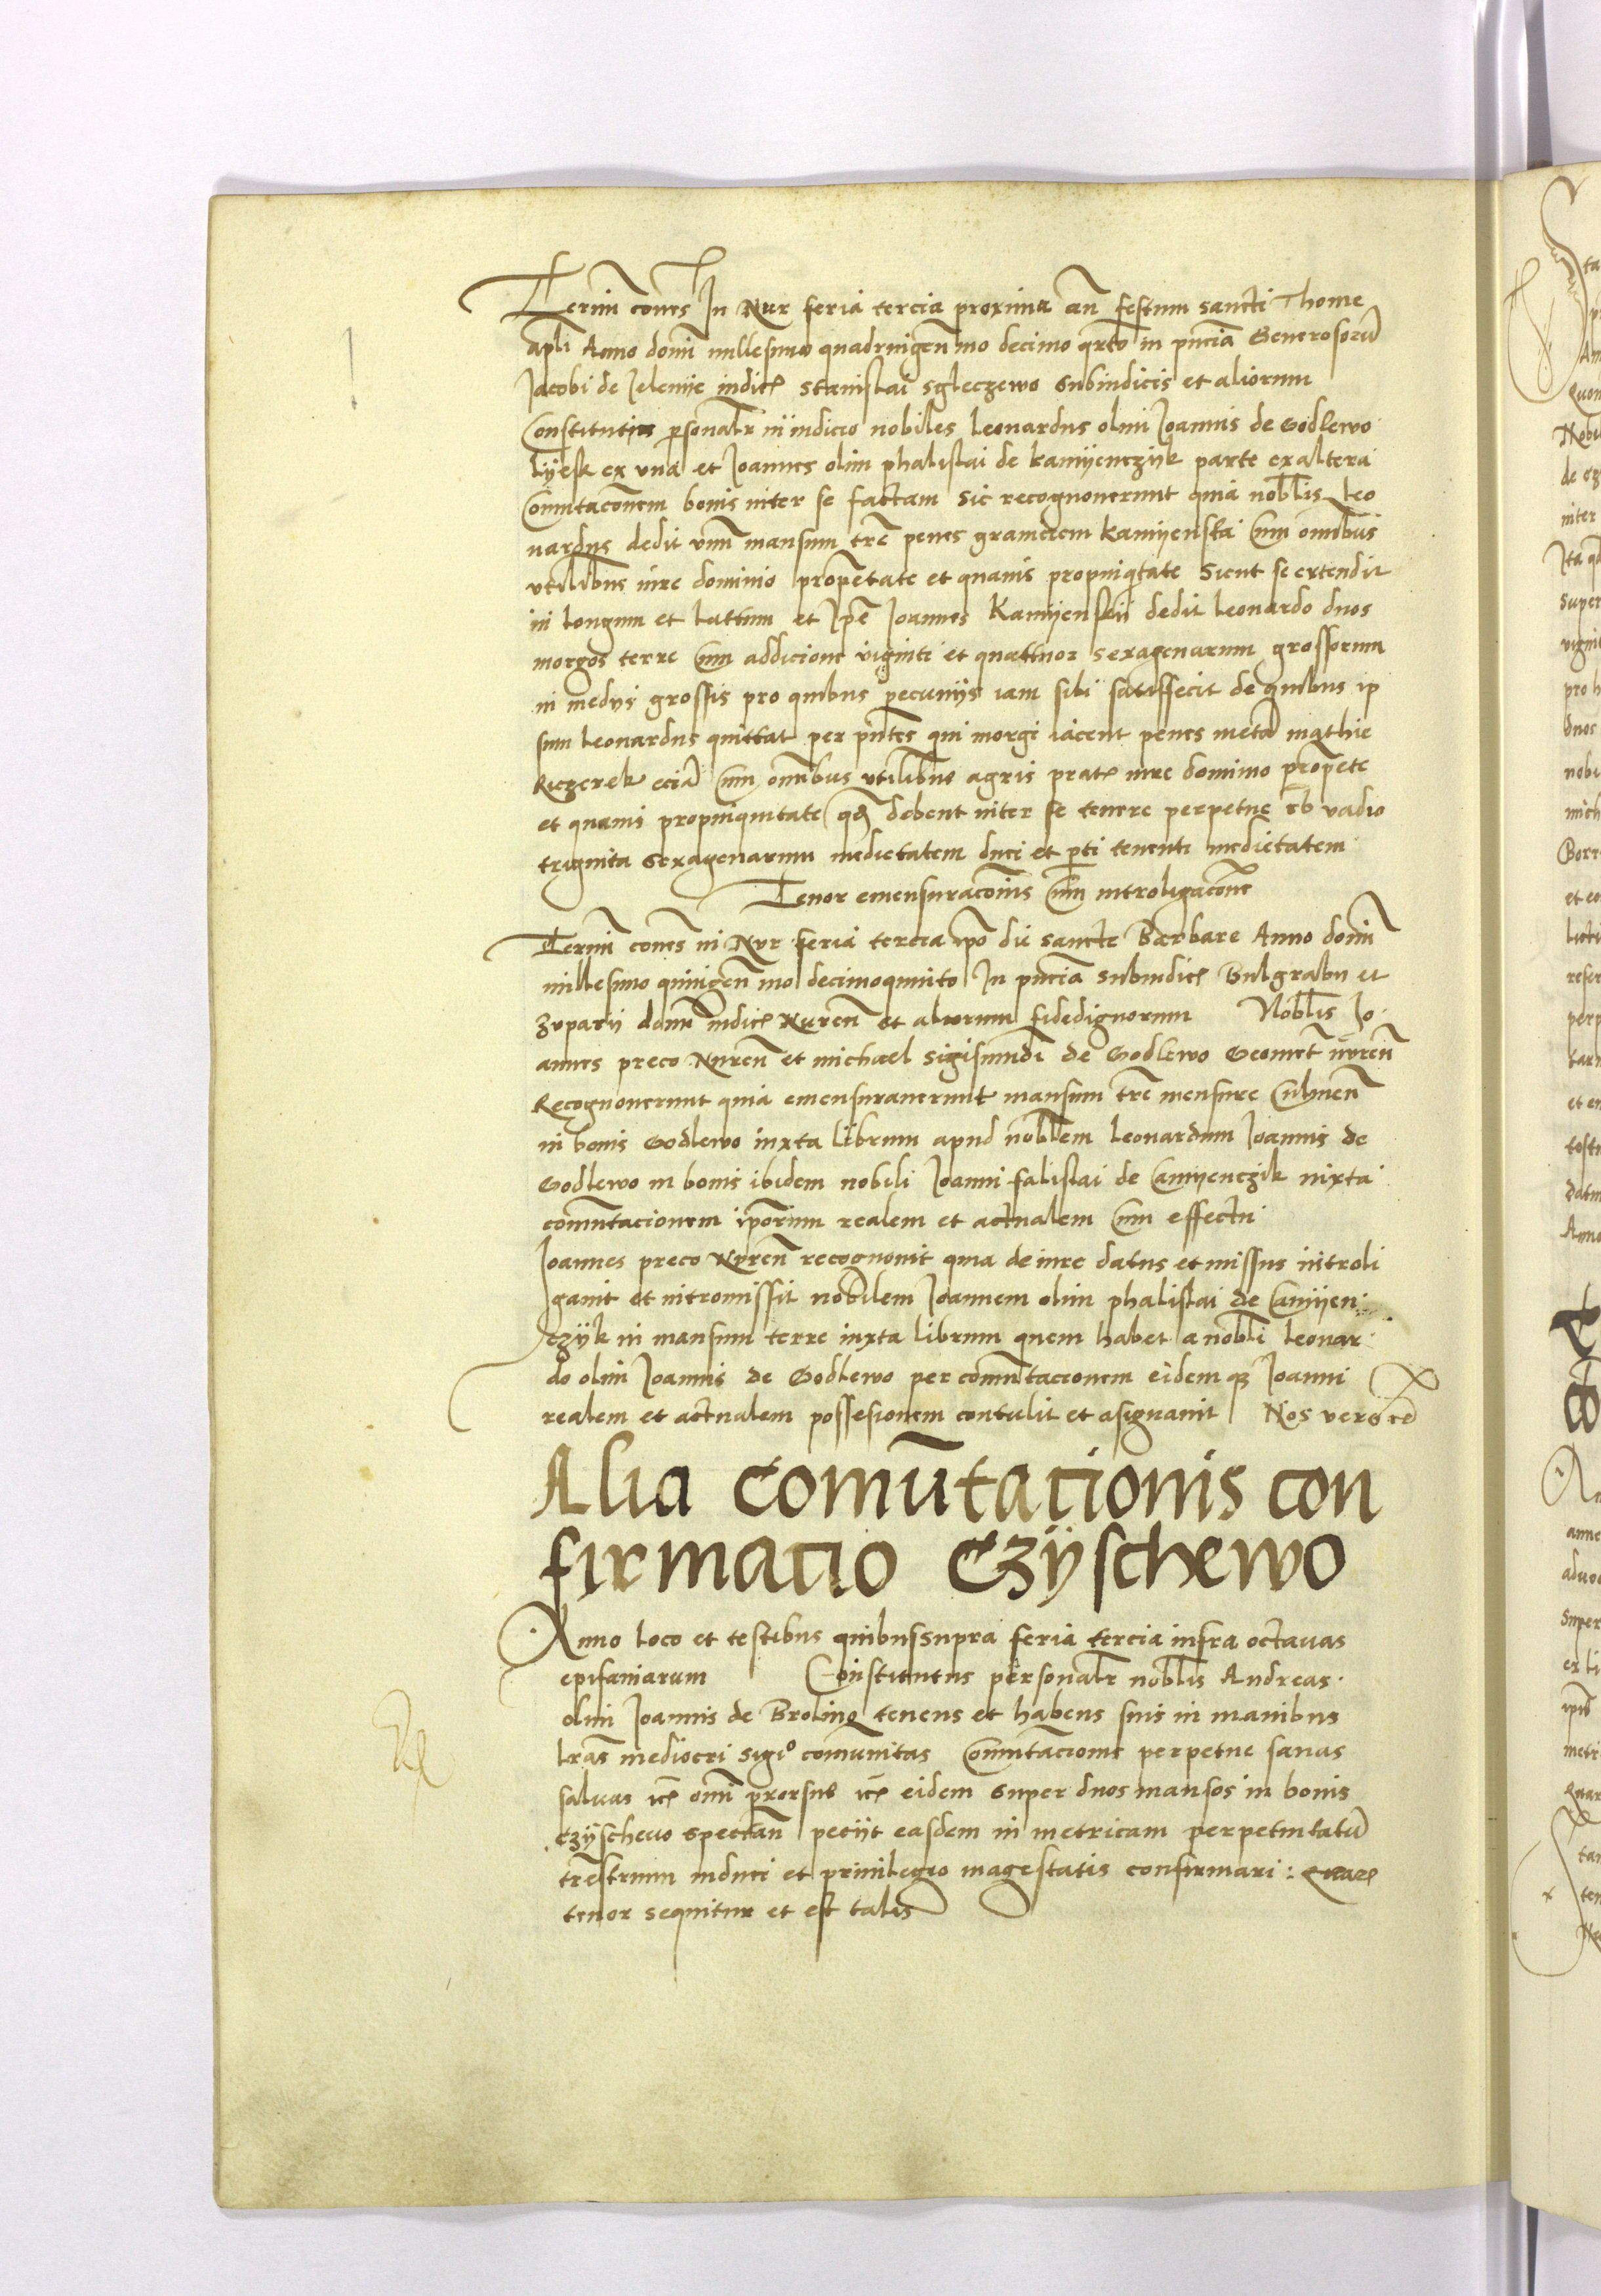 Termĩ coñes In Nur feria tercia proxima añ festum sancti Thome
apłi Anno domĩ millesimo quadringeñmo decimo qrto in pñcia Generosorũ
Jacobi de Jeleniie iudicꝭ Stanislai Sgleczewo Subiudicis et aliorum
Constitutis psonalr in iudicio nobiles Leonardus olim Joannis de Godlewo
lyesk ex vna et Joannes olim phalislai de kamyenczyk parte ex altera
Comutacõnem bonis inter se factam Sic recognouerunt quia noblis Leo
nardus dedit vnũ mansum tre penes graniciem kamyenska cum omĩbus
vtilibus iure dominio propetate et quauis propinqtate Sicut se extendit
in longum et lattum et Ipẽ Joannes Kamyenskii dedit Leonardo duos
morgos terre cum addicione viginti et quattuor sexagenarum grossorum
in mediis grossis pro quibus pecuniis iam sibi satisfecit de quibus ip
sum Leonardus quittat per pñtes qui morgi iacent penes metã mathie
Kuczerek eciã cum omĩbus vtilibus agris pratꝭ iure dominio propete
et quauis propinquitate qꝫ debent inter se tenere perpetue sb vadio
triginta sexagenarum medietatem duci et pti tenenti medietatem
Tenor emensuracõnis cum introligacõne
Termĩ coñes in Nur feria tercia ipõ die sancte Barbare Anno domĩ
millesimo quingeñmo decimoquinto In pñcia subiudicꝭ Bulgrabii et
zuparii domĩ iudicꝭ Nureñ et aliorum fidedignorum Noblis Jo
annes preco Nureñ et michael Sigismundi de Godlewo Geomet̃ nureñ
Recognouerunt quia emensurauerunt mansum tre mensure Culmeñ
in bonis Godlewo iuxta librum apud noblem Leonardum Joannis de
Godlewo in bonis ibidem nobili Joanni falislai de Camyenczik iuxta
comutacionem ipõrum realem et actualem cum effectu
Joannes preco Nureñ recognouit quia de iure datus et missus introli
gauit et intromissit nobilem Joannem olim phalislai de Camyen
czyk in mansum terre iuxta librum quem habet a nobli Leonar
do olim Joannis de Godlewo per comutacionem eidemqꝫ Joanni
realem et actualem possesionem contulit et asignauit Nos vero ec̃
Alia Comũtacionis con
firmacio Czyschewo
Anno loco et testibus quibus supra feria tercia infra octauas
epifaniarum Constitutus personalr noblis Andreas
olim Joannis de Brolino tenens et habens suis in manibus
lras mediocri sigiº comunitas Comutacione perpetue sanas
saluas ec̃ omĩ prorsus ec̃ eidem super duos mansos in bonis
Czyschewo spectañ petiit easdem in metricam perpetuitatũ
trestrium induci et priuilegio magestatis confirmari : Quarꝫ
tenor sequitur et est talis